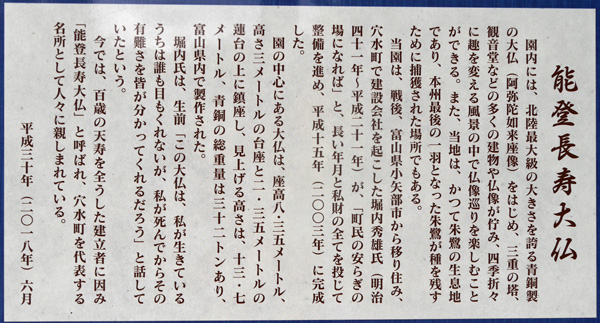 能登長寿大仏
園内には、北陸最大級の大きさを誇る青銅製
の大仏（阿弥陀如来座像）をはじめ、三重の塔、
観音堂などの多くの建物や仏像が佇み、四季折々
に趣を変える風景の中で仏像巡りを楽しむこと
ができる。また、当地は、かつて朱鷺の生息地
であり、本州最後の一羽となった朱鷺が種を残す
ために捕獲された場所でもある。
当園は、戦後、富山県小矢部市から移り住み、
穴水町で建設会社を起こした堀内秀雄氏（明治
四十一年〜平成二十一年）が、「町民の安らぎの
場になれば」と、長い年月と私財の全てを投じて
整備を進め、平成十五年（二〇〇三年）に完成
した。
園の中心にある大仏は、座高八・三五メートル、
高さ三メートルの台座と二・三五メートルの
蓮台の上に鎮座し、見上げる高さは、十三・七
メートル　青銅の総重量は三十二トンあり、
富山県内で製作された。
堀内氏は、生前「この大仏は、私が生きている
うちは誰も目もくれないが、私が死んでからその
有難さを皆が分かってくれるだろう」と話して
いたという。
今では、百歳の天寿を全うした建立者に因み
「能登長寿大仏」と呼ばれ、穴水町を代表する
名所として人々に親しまれている。
平成三十年（二〇一八年）六月